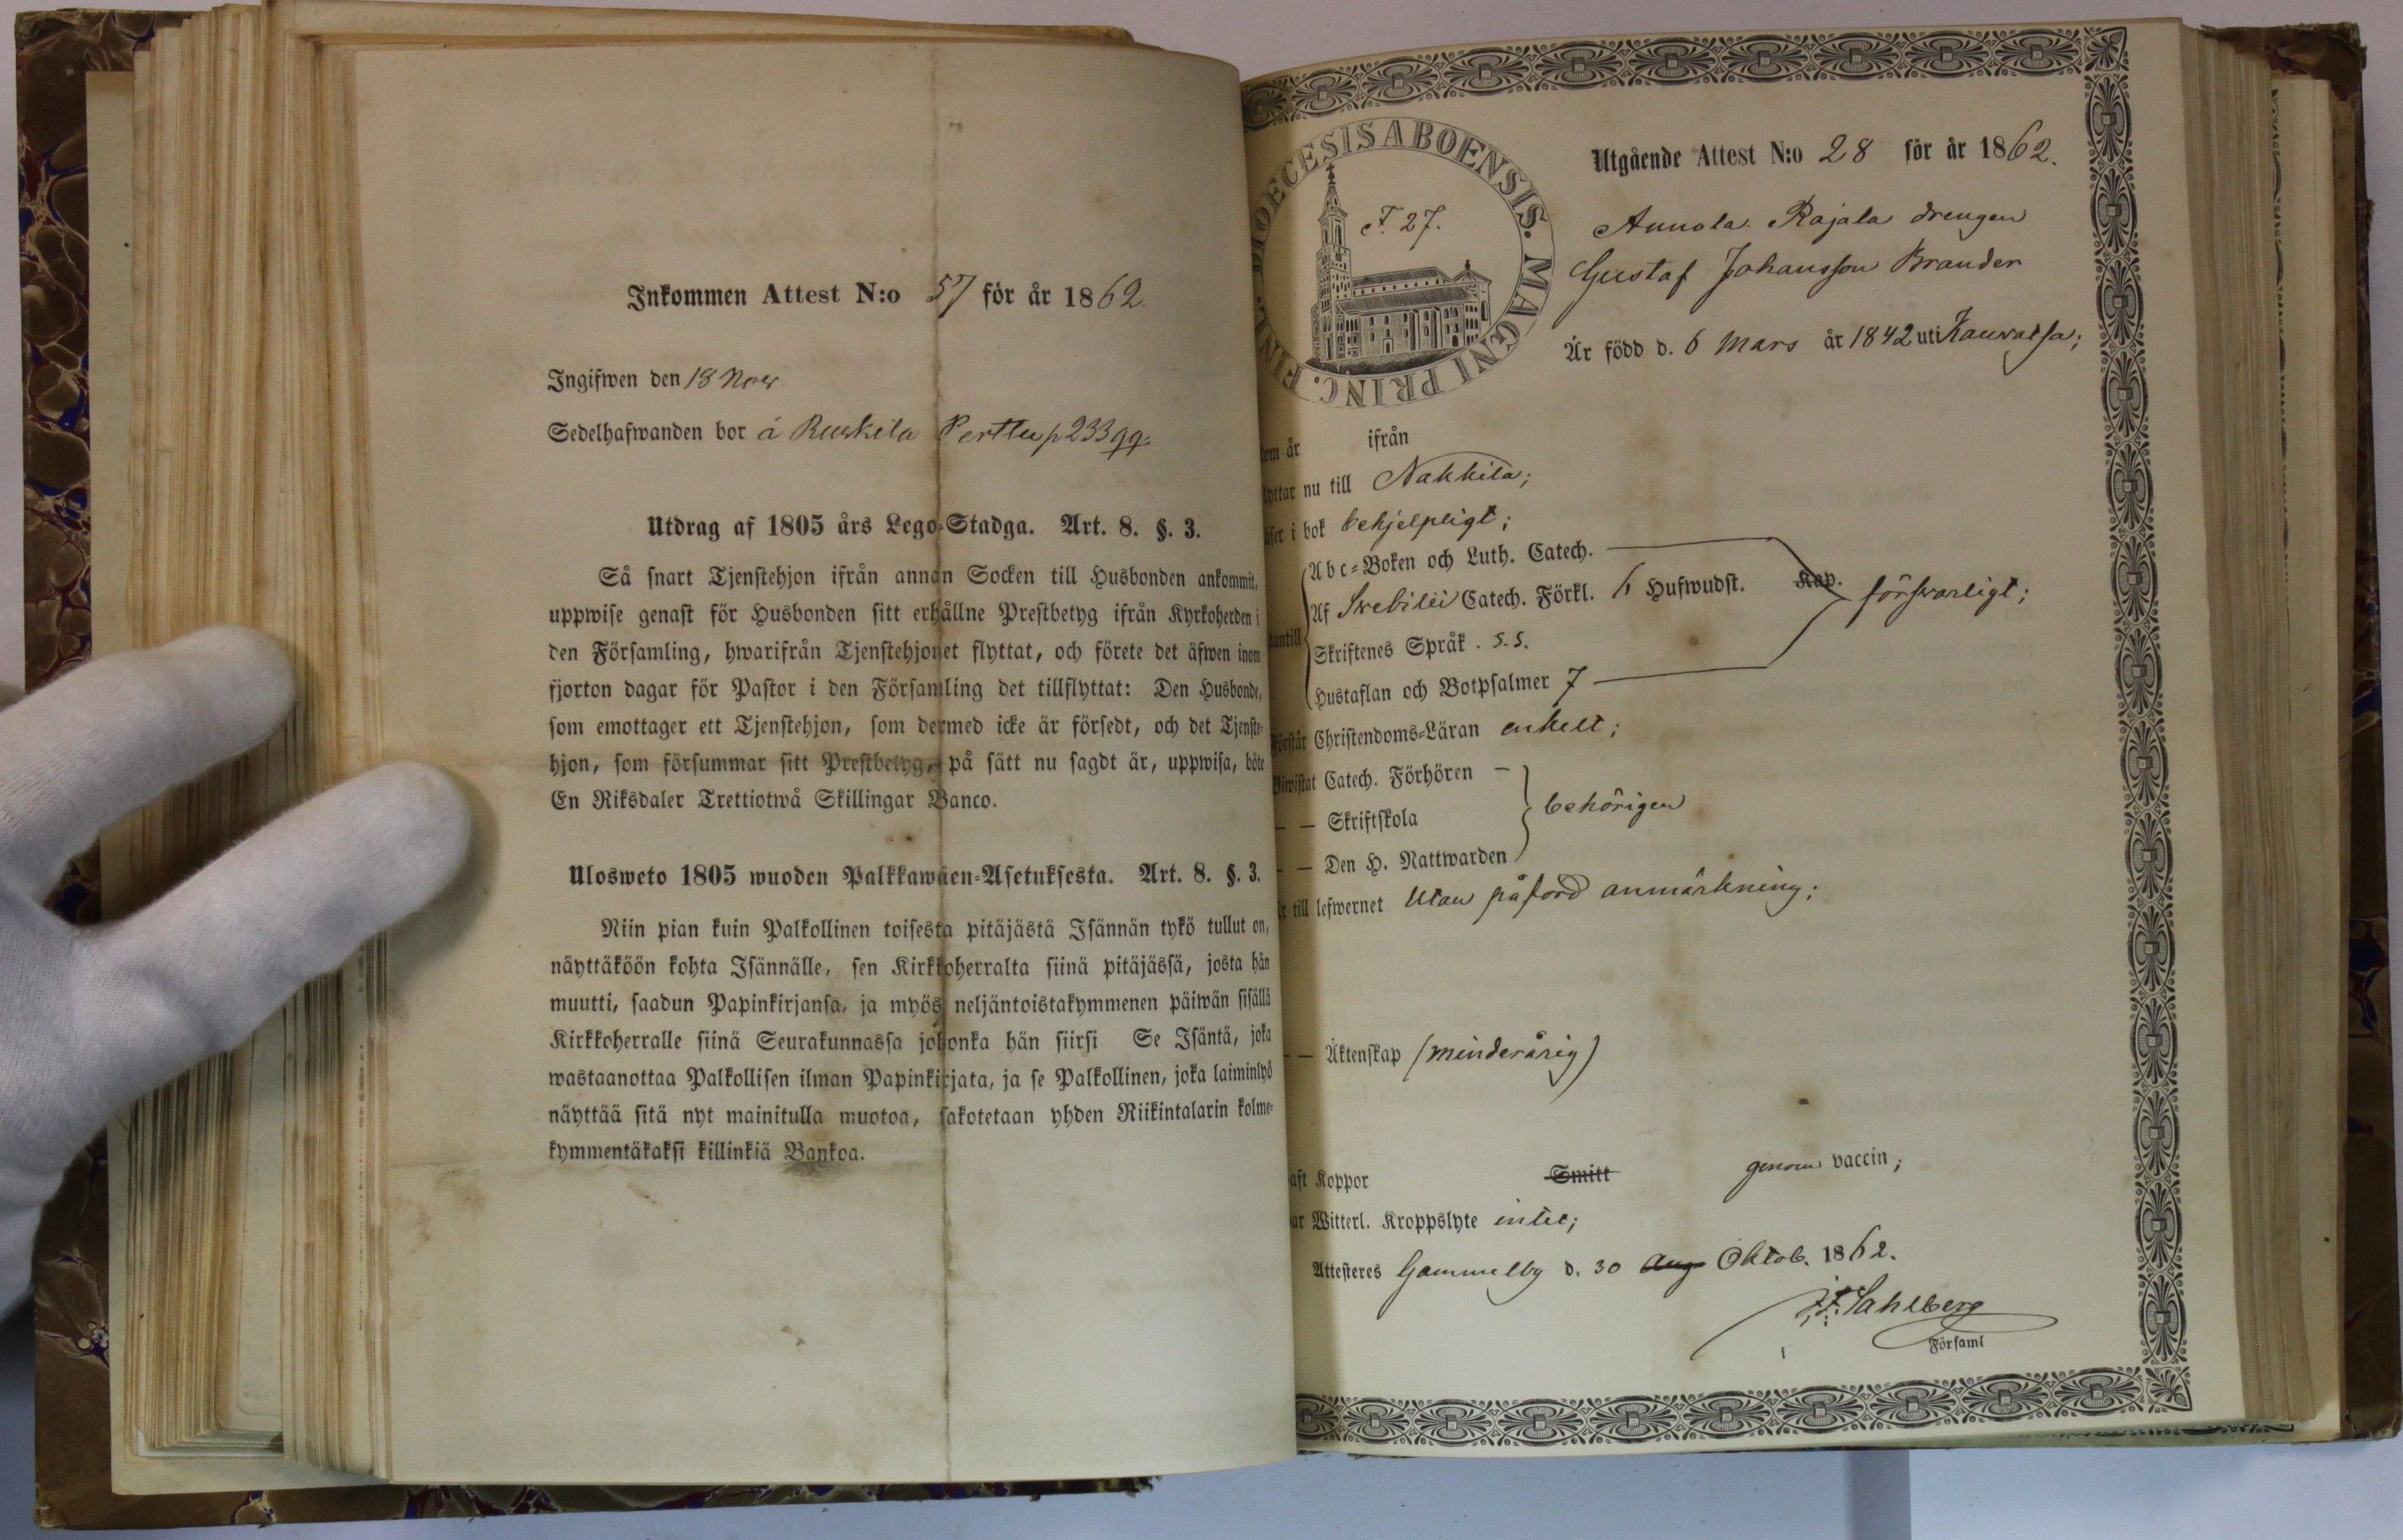 Inkommen Attest N:o 57 för år 1862.
Ingifwen den 18 Nov
Sedelhafwanden bor å Ruskila Perttu p 233 qq.
Utdrag af 1805 års Lego-Stadga. Art. 8. §. 3.
Så snart Tjenstehjon ifrån annan Socken till Husbonden ankommit,
uppwise genast för Husbonden sitt erhållne Prestbetyg ifrån Kyrkoherden i
den Församling, hwarifrån Tjenstehjonet flyttat, och förete det äfwen inom
fjorton dagar för Pastor i den Församling det tillflyttat: Den Husbonde,
som emottager ett Tjenstehjon, som dermed icke är försedt, och det Tjenste-
hjon, som försummar sitt Prestbetyg, på sätt nu sagdt är, uppwisa, böte
En Riksdaler Trettiotwå Skillingar Banco.
Ulosweto 1805 wuoden Palkkawäen-Asetuksesta. Art. 8. §. 3.
Niin pian kuin Palkollinen toisesta pitäjästä Isännän tykö tullut on,
näyttäköön kohta Isännälle, sen Kirkkoherralta siinä pitäjässä, josta hän
muutti, saadun Papinkirjansa, ja myös neljäntoistakymmenen päiwän sisällä
Kirkkoherralle siinä Seurakunnassa johonka hän siirsi Se Isäntä, joka
wastaanottaa Palkollisen ilman Papinkirjata, ja se Palkollinen, joka laiminlyö
näyttää sitä nyt mainitulla muotoa, sakotetaan yhden Riikintalarin kolme-
kymmentäkaksi killinkiä Bankoa.
DIOECESIS ABOENSIS. MAGNI PRINC. FINL.
F. 27.
Utgående Attest N:o 28 för år 1862.
Annola Rajala drengen
Gustaf Johansson Brander
Är född d. 6 Mars år 1842 uti Kauvatsa;
om år ifrån
yttar nu till Nakkila;
äser i bok behjelpligt;
Abc-Boken och Luth. Catech.
Af Swebilii Catech. Förkl. 6 Hufwudst. Kap. försvarligt;
antill
Skriftenes Språk . s. s.
Hustaflan och Botpsalmer 7
Förstår Christendoms-Läran enkelt;
Biwistat Catech. Förhören —
— — Skriftskola
behörigen
— — Den H. Nattwarden
är till lefwernet utan påförd anmärkning;
— — Äktenskap (minderårig)
aft Koppor Smitt genom vaccin;
ar Witterl. Kroppslyte intet;
Attesteres Gammelby d. 30 Aug Oktob. 1862.
F. F. Sahlberg
Församl